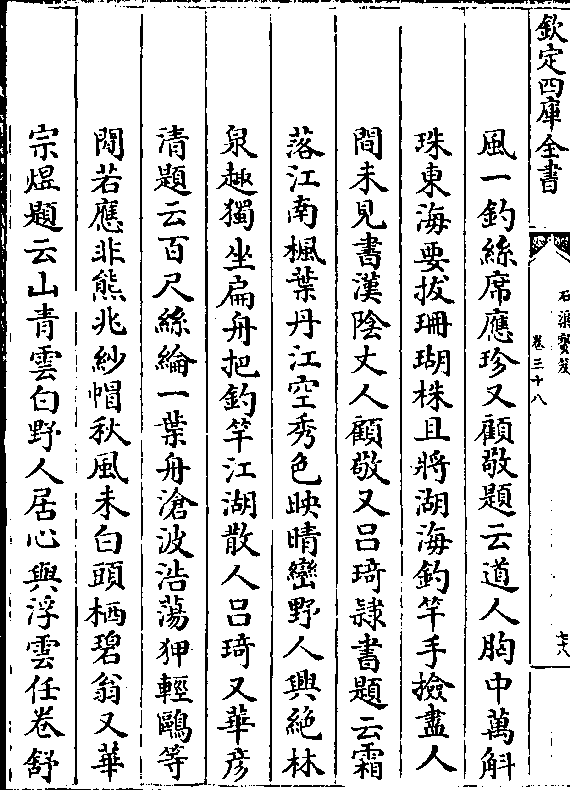 欽定四庫全書
石渠寳笈
卷三十八
七八
風一釣絲席應珍又顧敬題云道人胸中萬斛
珠東海要拔珊瑚株且將湖海釣竿手撿盡人
間未見書漢陰丈人顧敬又吕琦隷書題云霜
落江南楓葉丹江空秀色映晴巒野人興絶林
泉趣獨坐扁舟把釣竿江湖散人吕琦又華彦
清題云百尺絲綸一葉舟滄波浩蕩狎輕鷗等
閒若應非熊兆紗帽秋風未白頭栖碧翁又華
宗煜題云山青雲白野人居心與浮雲任卷舒